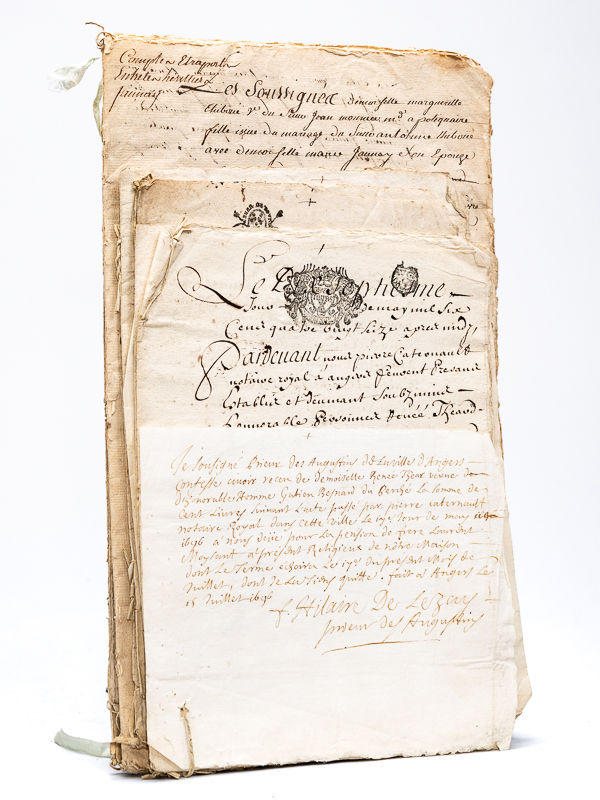 Compte
Les Soussignéz demoiselle marguerite
Thibaüe Ve du Sieur Jean monnier md apotiquaire
fille issue du mariage du Sieur antoinne Thibaüe
avec demoiselle marie Jaunay son Eponze
Le Dix Septiesme
Jour De may mil Six
Cens quatre vingt Seize apres midy
Pardevant nous pierre Caternault
notaire royal a angers furent Presans
Establis et deuemant Soubzmins
honnorable Personnes Renée Theard
Je soussigné Prieur des Augustins De La ville d'Angers
Confesse avoir receu de demoiselle Renée Tear veuve de
des noralle Homme Gatien Besnard du Perché La Somme de
Cent Livres suivant L'acte passé par pierre caternault
notaire Royal dans cette ville Le 17e Jour de may
1696 a nous deüe pour La pension de frere Laurent
Moysant a present Religieux de nôtre Maison
dont Le Terme echoira Le 17e du present Mois de
Juillet, dont de La tiens quitte. fait a Angers Le
15 Juillet 1696
f. Hilaire De Lezeau
prieur des Augustins